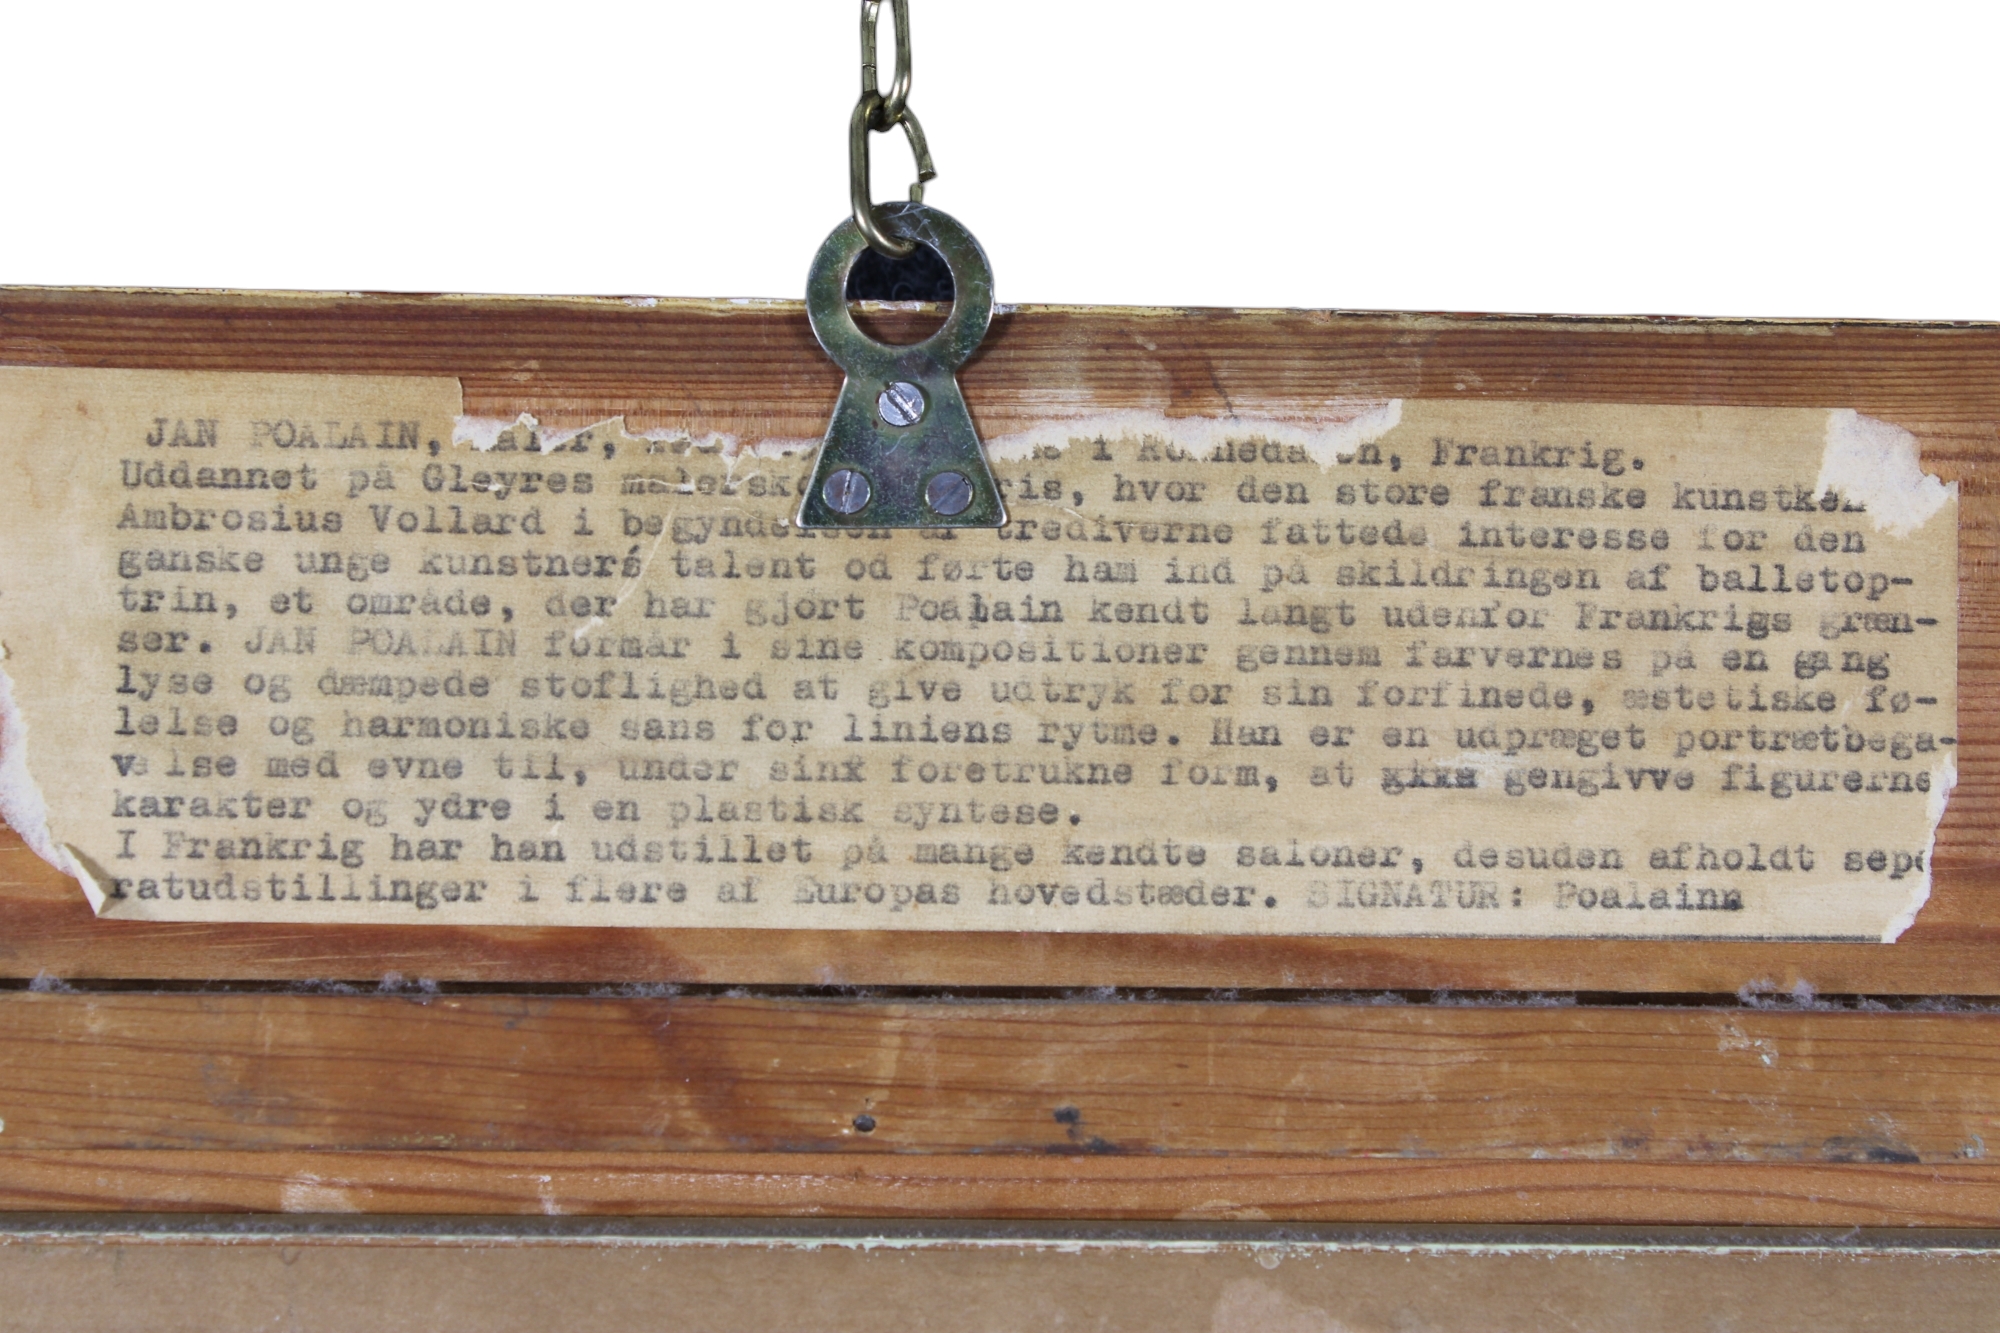 JAN POALAIN, maler, i Frankrig.
Uddannet på Gleyres hvor den store franske
Ambrosius Vollard i begyndelsen af trediverne fattede interesse for den
ganske unge kunstners talent od førte ham ind på skildringen af balletop-
trin, et område, der har gjort Poalain kendt langt udenfor Frankrigs græn-
ser. JAN POALAIN formår i sine kompositioner gennem farvernes på en gang
lyse og dæmpede stoflighed at give udtryk for sin forfinede, æstetiske fø-
lelse og harmoniske sans for liniens rytme. Han er en udpræget portrætbega-
velse med evne til, under sin foretrukne form, at gengivve figurerne
karakter og ydre i en plastisk syntese.
I Frankrig har han udstillet på mange kendte saloner, desuden afholdt sepa
ratudstillinger i flere af Europas hovedstæder. SIGNATUR: Poalain